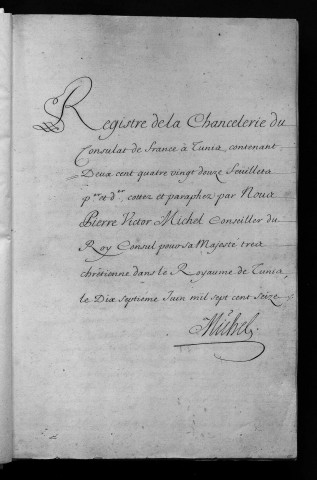 Registre de la Chancelerie du
Consulat de france à Tunis, contenant
Deux cent quatre vingt douze feuillets
p.er et d.er, cottez et paraphez par Nous
Pierre Victor Michel Conseiller du
Roy Consul pour sa Majesté tres
chrêtienne dans le Royaume de Tunis,
le Dix septieme Juin mil sept cent seize
Michel.